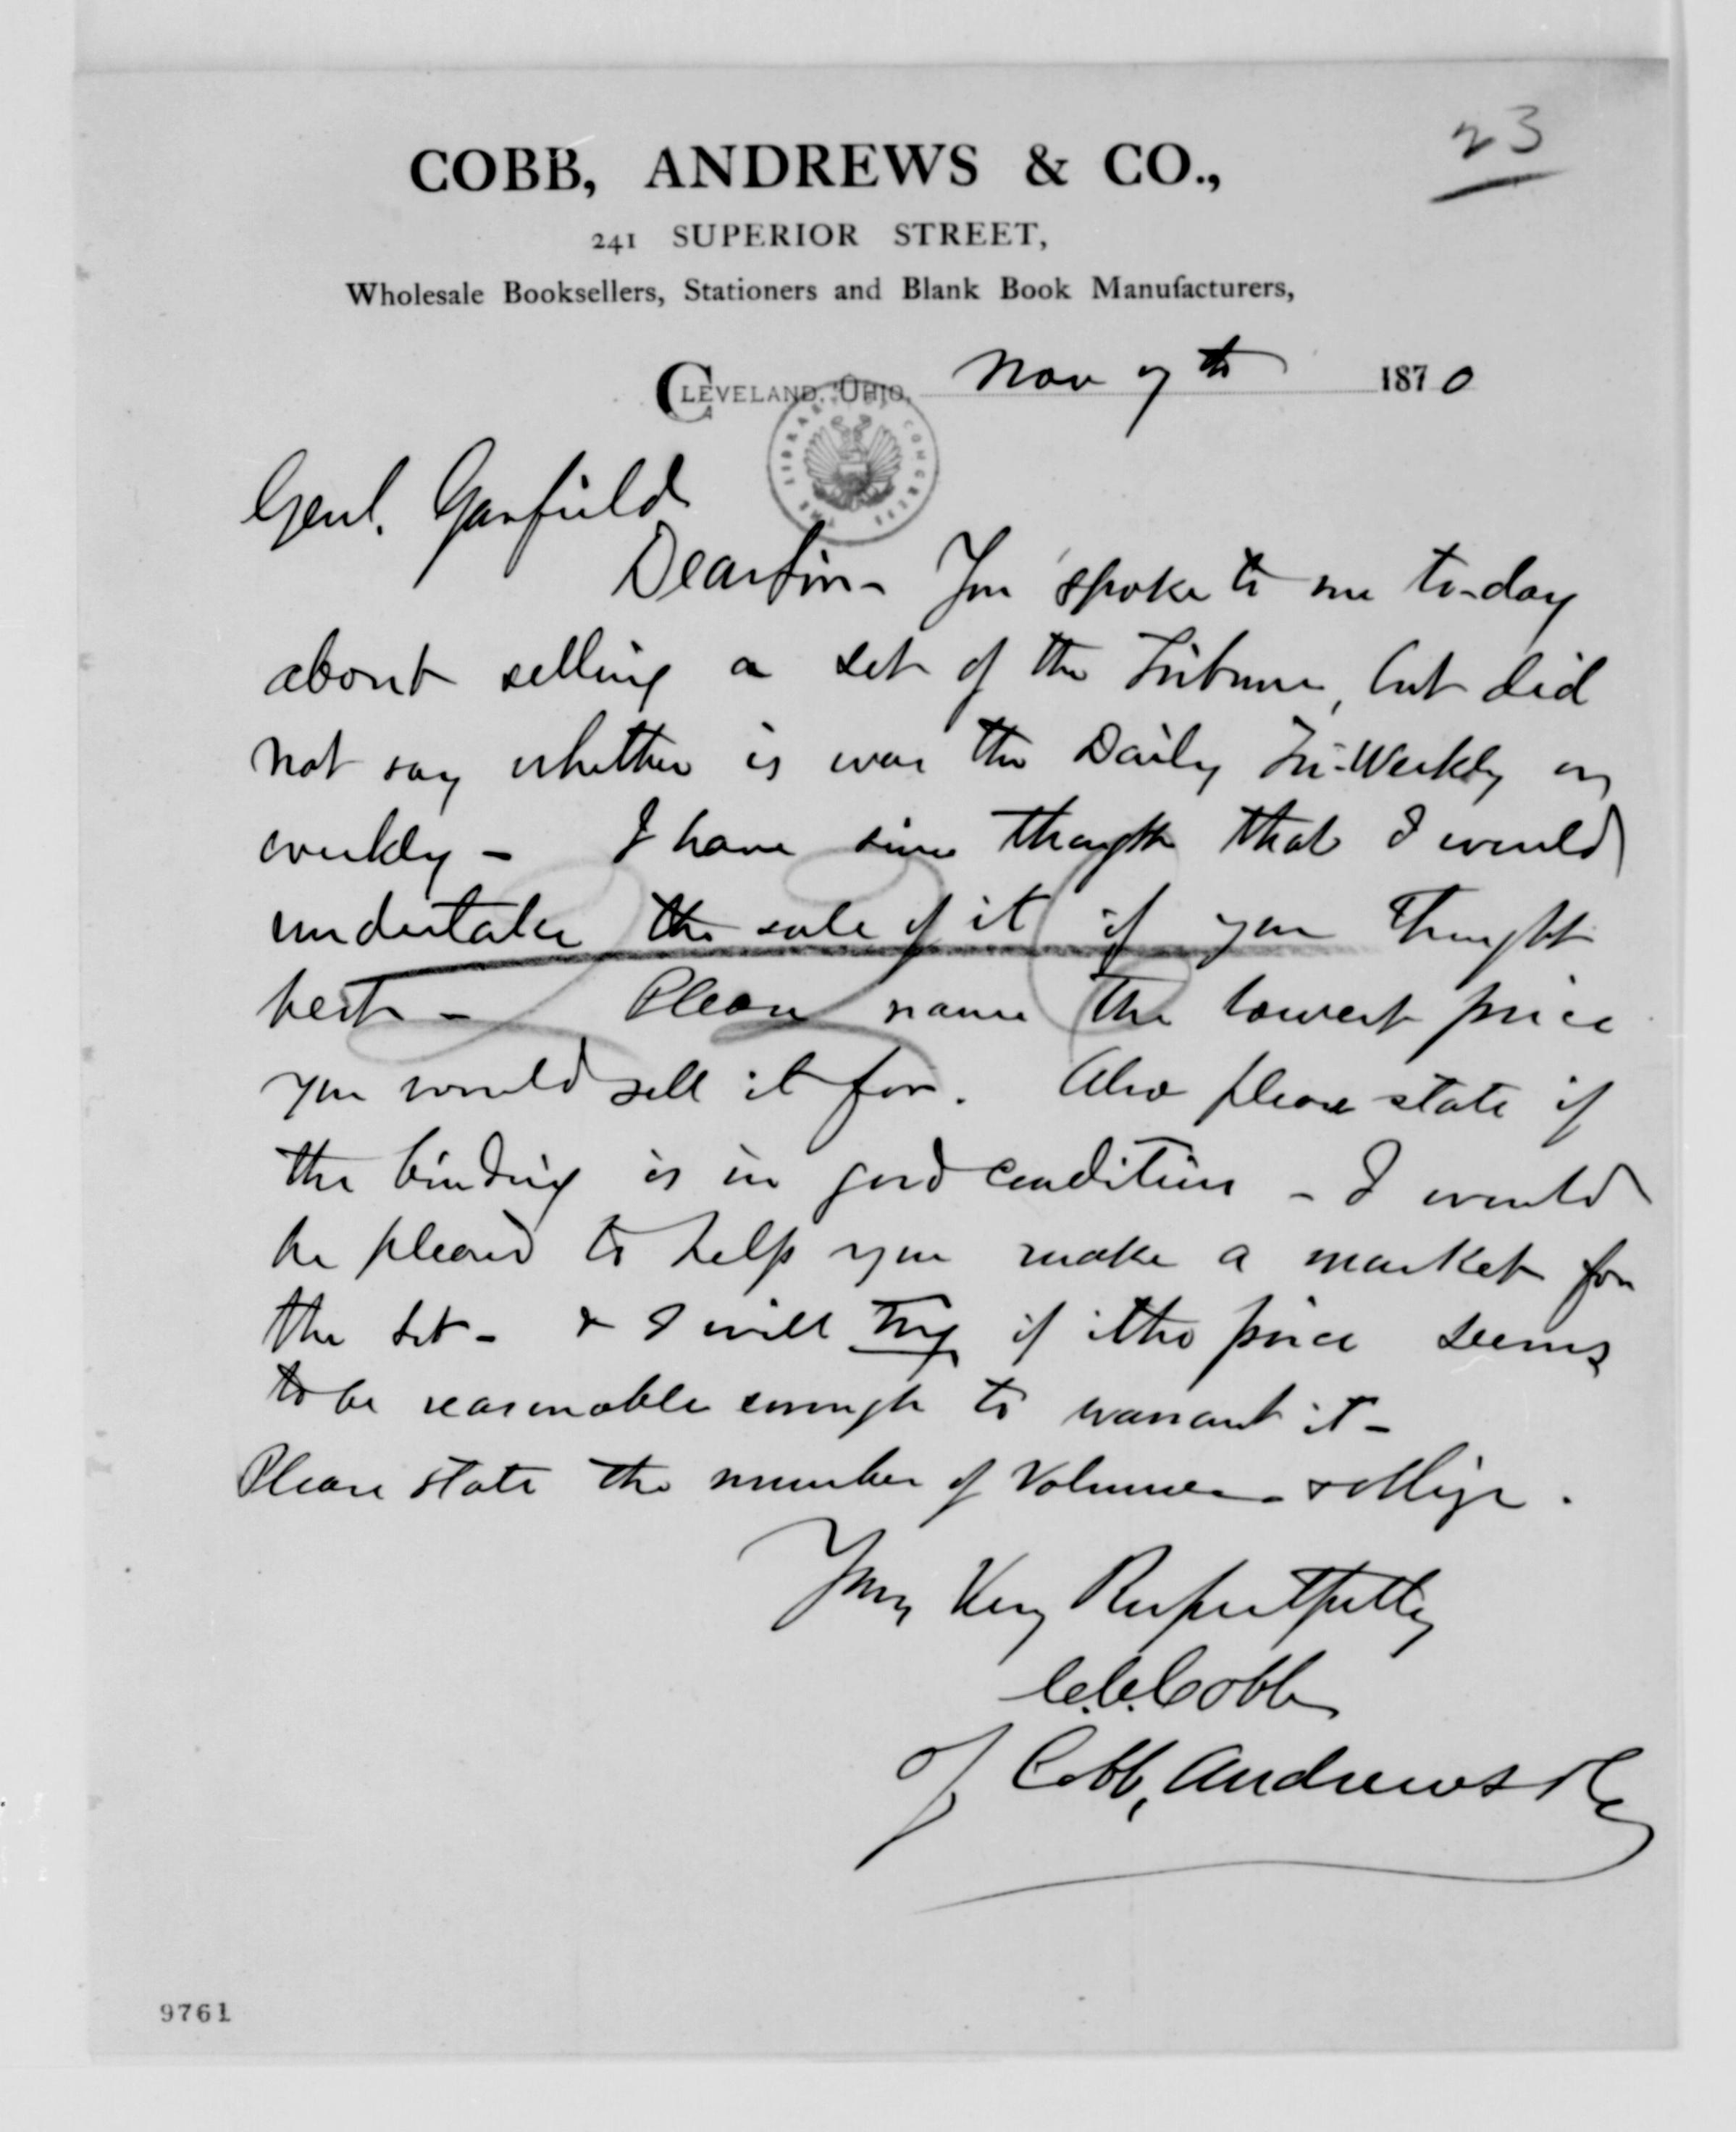 23
COBB, ANDREWS & CO.,
241 SUPERIOR STREET,
Wholesale Booksellers, Stationers and Blank Book Manufacturers,
CLEVELAND, OHIO, Nov 7th 1870
THE LIBRARY OF CONGRESS
Genl. Garfield
Dear Sir - You spoke to me to-day
about selling a set of the Tribune, but did
not say whether is was the Daily Tri-Weekly or
weekly - I have since thought that I would
undertake the sale of it if you thought
best - Please name the lowest price
you would sell it for. Also please state if
the binding is in good condition - I would
be pleased to help you make a market for
the set - & I will try if the price seems
to be reasonable enough to warrant it -
Please state the number of Volumes - & oblige.
Yours Very Respectfully
C.C. Cobb
of Cobb, Andrews & Co
9761